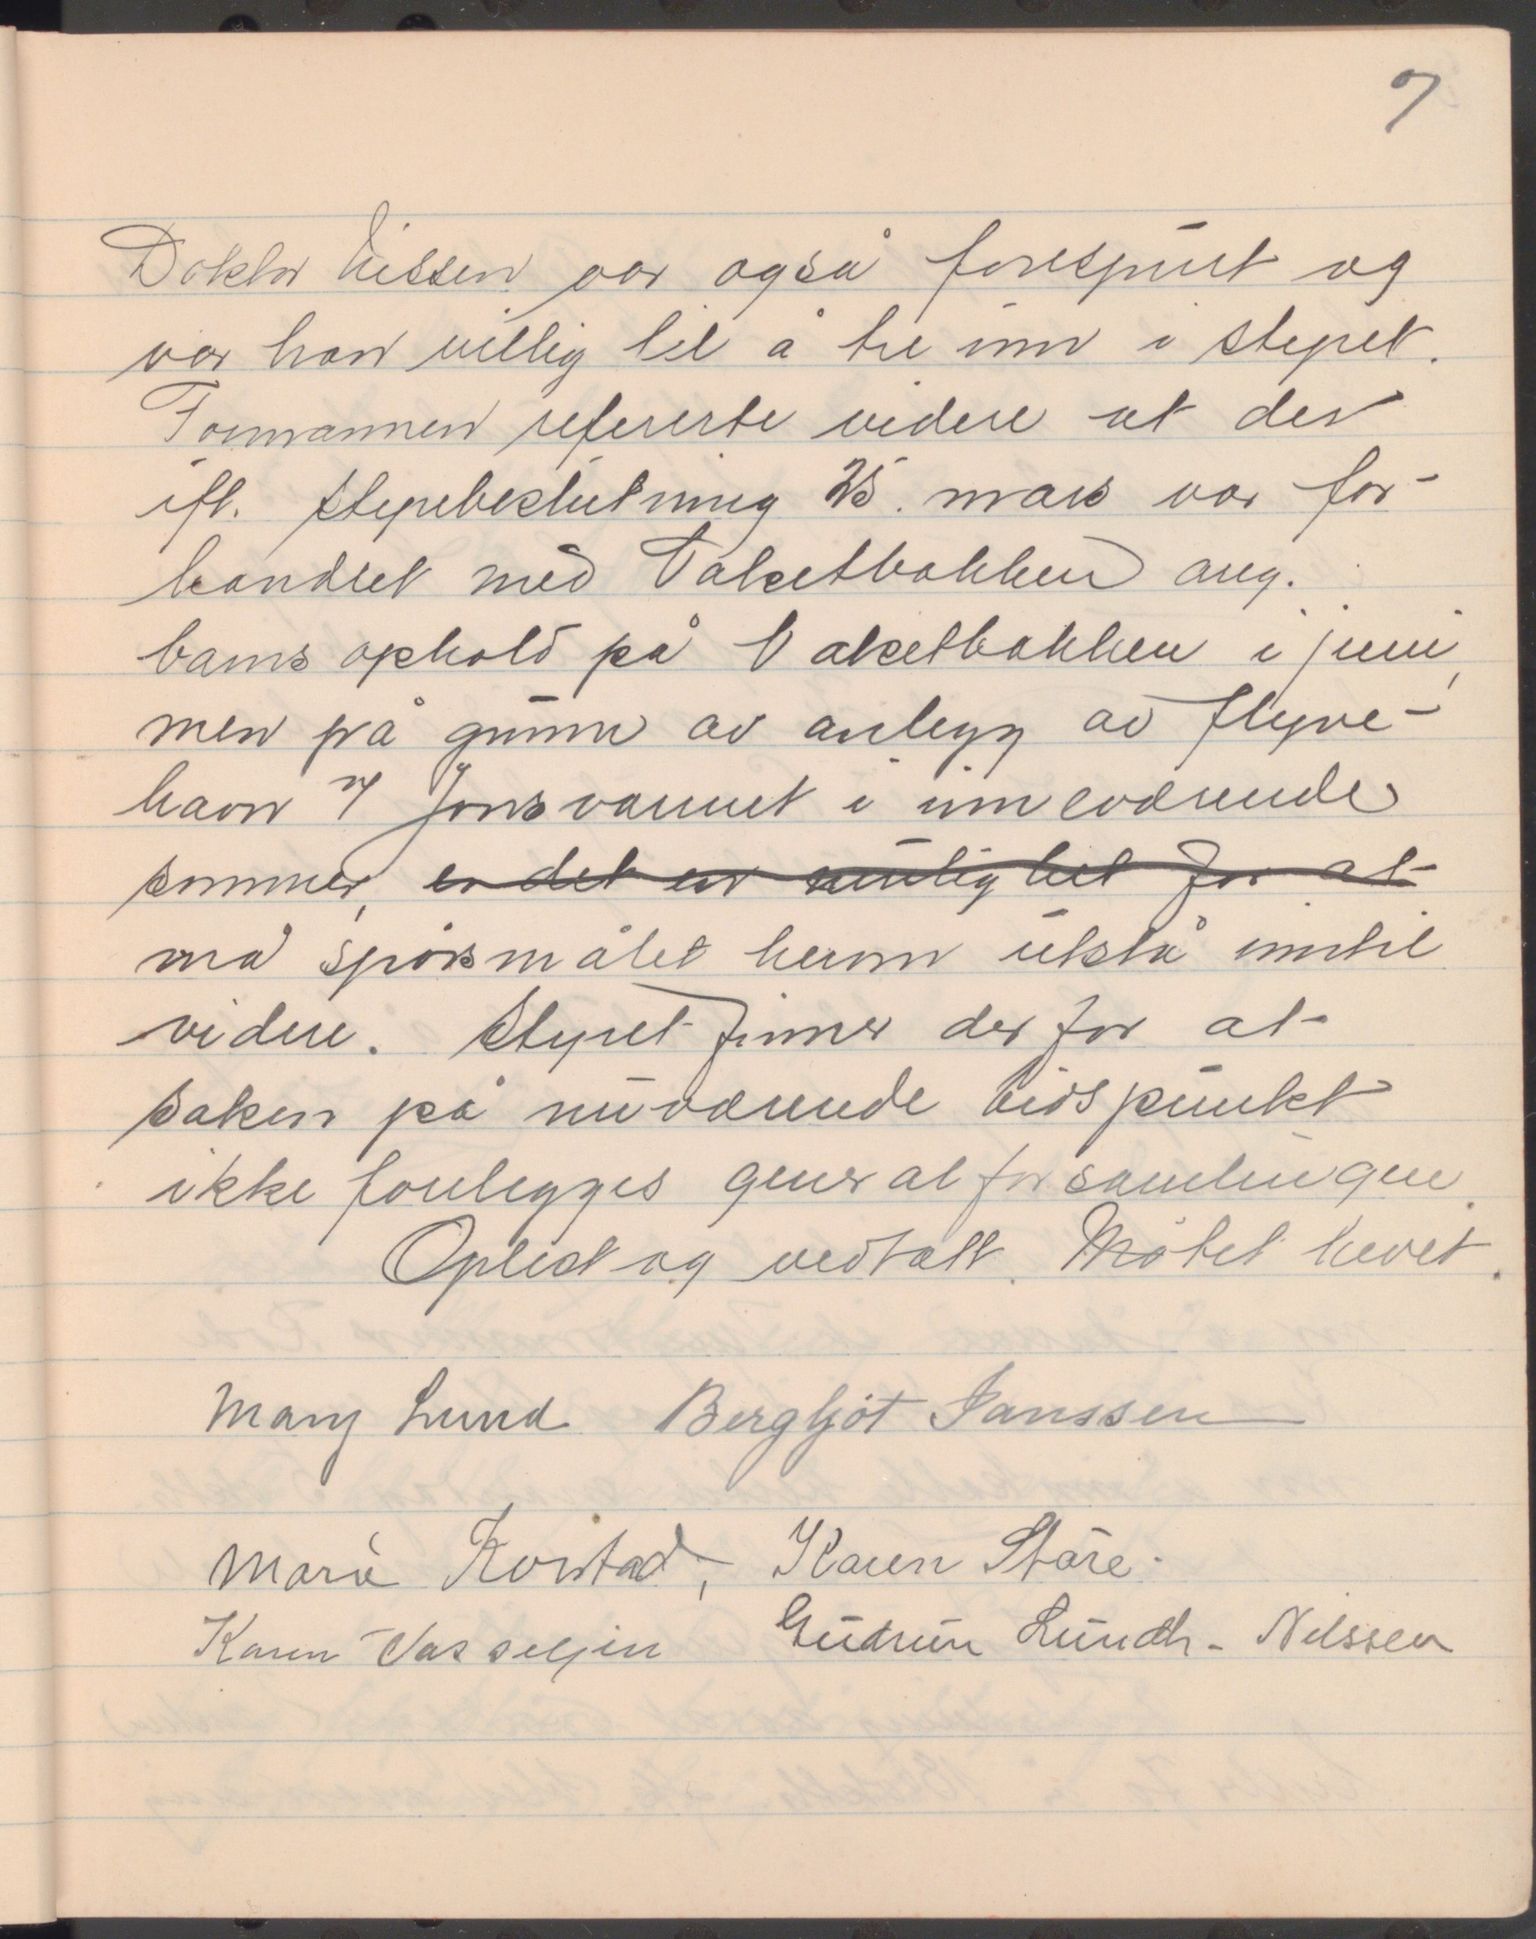 7
Doktor Nissen var også forespurt og
var han villig til å tre inn i styret.
Formannen refererte videre at der
ifl. styrebeslutning 25. mars var for-
handlet med Vaketbakken ang.
barns ophold på Vaketbakken i juni,
men på grunn av anlegg av flyve-
havn v/ Jonsvannet i inneværende
sommer, er det en mulighet for at
må spørsmålet herom utstå inntil
videre. Styret finner derfor at
saken på nuværende tidspunkt
ikke forelegges generalforsamlingen.
Oplest og vedtatt. Møtet hevet.
Mary Lund Bergljot Janssen
Marie Korstad, Karen Støre.
Karen Vasseljen Gudrun Lundh-Nilssen